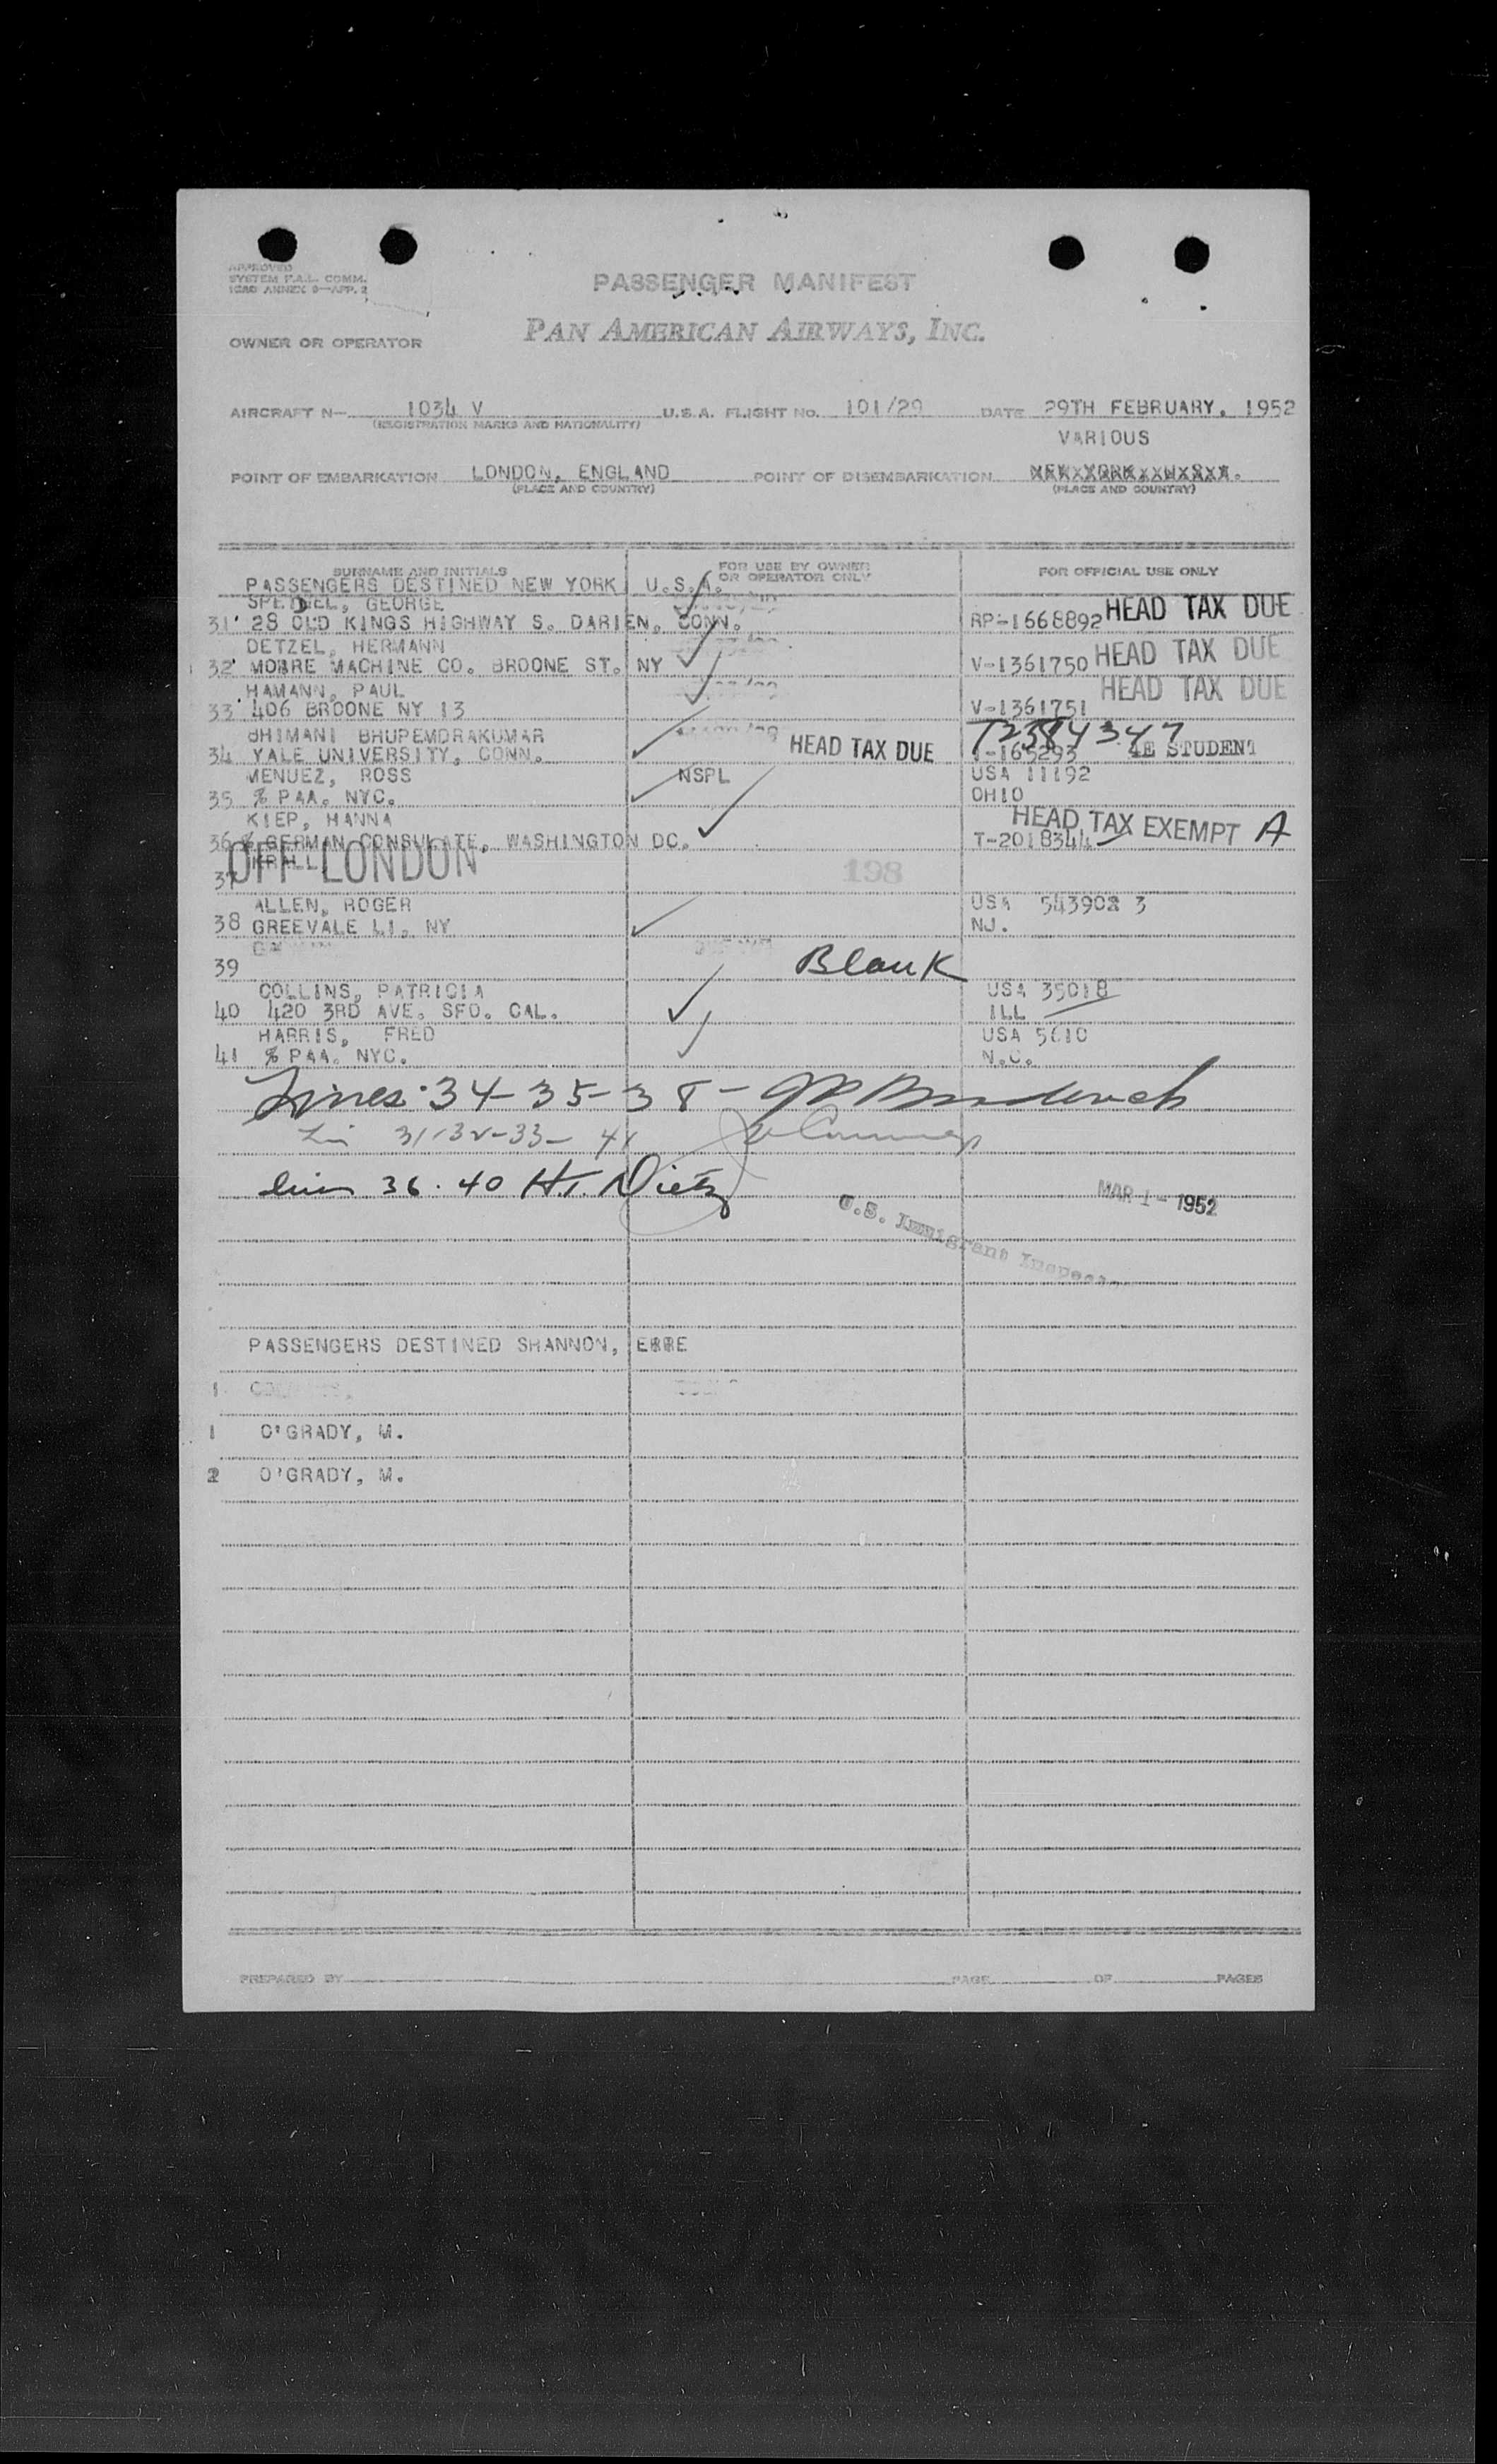 APPROVED
SYSTEM F.A.L. COMM.
ICAO ANNEX 9—APP. 2
PASSENGER MANIFEST
OWNER OR OPERATOR
PAN AMERICAN AIRWAYS, INC.
AIRCRAFT N— 1034 V U.S.A. FLIGHT No. 101/29 DATE 29TH FEBRUARY, 1952
(REGISTRATION MARKS AND NATIONALITY)
VARIOUS
POINT OF EMBARKATION LONDON, ENGLAND POINT OF DISEMBARKATION
(PLACE AND COUNTRY) (PLACE AND COUNTRY)
SURNAME AND INITIALS FOR USE BY OWNER OR OPERATOR ONLY FOR OFFICIAL USE ONLY
PASSENGERS DESTINED NEW YORK U.S.A.
SPEIDEL, GEORGE
31 28 OLD KINGS HIGHWAY S. DARIEN, CONN. RP-1668892 HEAD TAX DUE
DETZEL, HERMANN
32 MOHRE MACHINE CO. BROONE ST. NY V-1361750 HEAD TAX DUE
HAMANN, PAUL HEAD TAX DUE
33 406 BROONE NY 13 V-1361751
BHIMANI BHUPEMDRAKUMAR
34 YALE UNIVERSITY, CONN. HEAD TAX DUE T-165293 4E STUDENT
MENUEZ, ROSS NSPL USA 11192
35 % PAA. NYC. OHIO
KIEP, HANNA HEAD TAX EXEMPT A
36 % GERMAN CONSULATE, WASHINGTON DC. T-2018344
OFF LONDON
37 198
ALLEN, ROGER USA 543902 3
38 GREEVALE LI. NY NJ.
39 Blank
COLLINS, PATRICIA USA 35018
40 420 3RD AVE. SFO. CAL. ILL
HARRIS, FRED USA 5610
41 % PAA. NYC. N.C.
Lines 34-35-38-
31-32-33- 41
36. 40 H.T. Dietz
U.S. Immigrant Inspector
MAR 1- 1952
PASSENGERS DESTINED SHANNON, EIRE
1
1 O'GRADY, M.
2 O'GRADY, M.
PREPARED BY PAGE OF PAGES